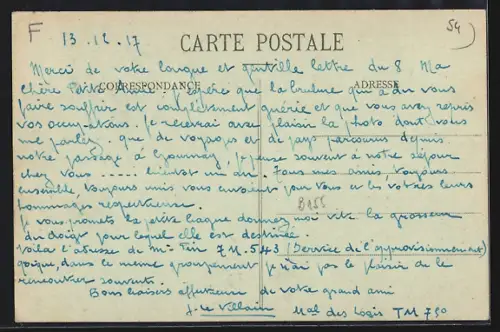 F
54
13.12.17
CARTE POSTALE
Merci de votre longue et gentille lettre du 8 Ma
CORRESPONDANCE
ADRESSE
chère Petite Amie. J'espère que la brulure qui a du vous
faire souffrir est complètement guérie et que vous avez repris
vos occupations. Je recevrai avec plaisir la photo dont vous
me parlez. que de voyages et de pays parcourus depuis
notre passage à Gournay, je pense souvent à notre séjour
chez vous ..... bientot un an. Tous mes amis, toujours
ensemble, toujours unis vous envoient pour vous et les votres leurs
hommages respectueux.
B255
Je vous promets la petite bague donnez moi vite la grosseur
du doigt pour lequel elle est destinée.
Voila l'adresse de Mr 7 M. 543 (Service de l'approvisionnement)
quoique, dans le même groupement je n'ai pas le plaisir de le
rencontrer souvent.
Bons baisers affectueux de votre grand ami
J. le Villain
Mal des logis TM 750